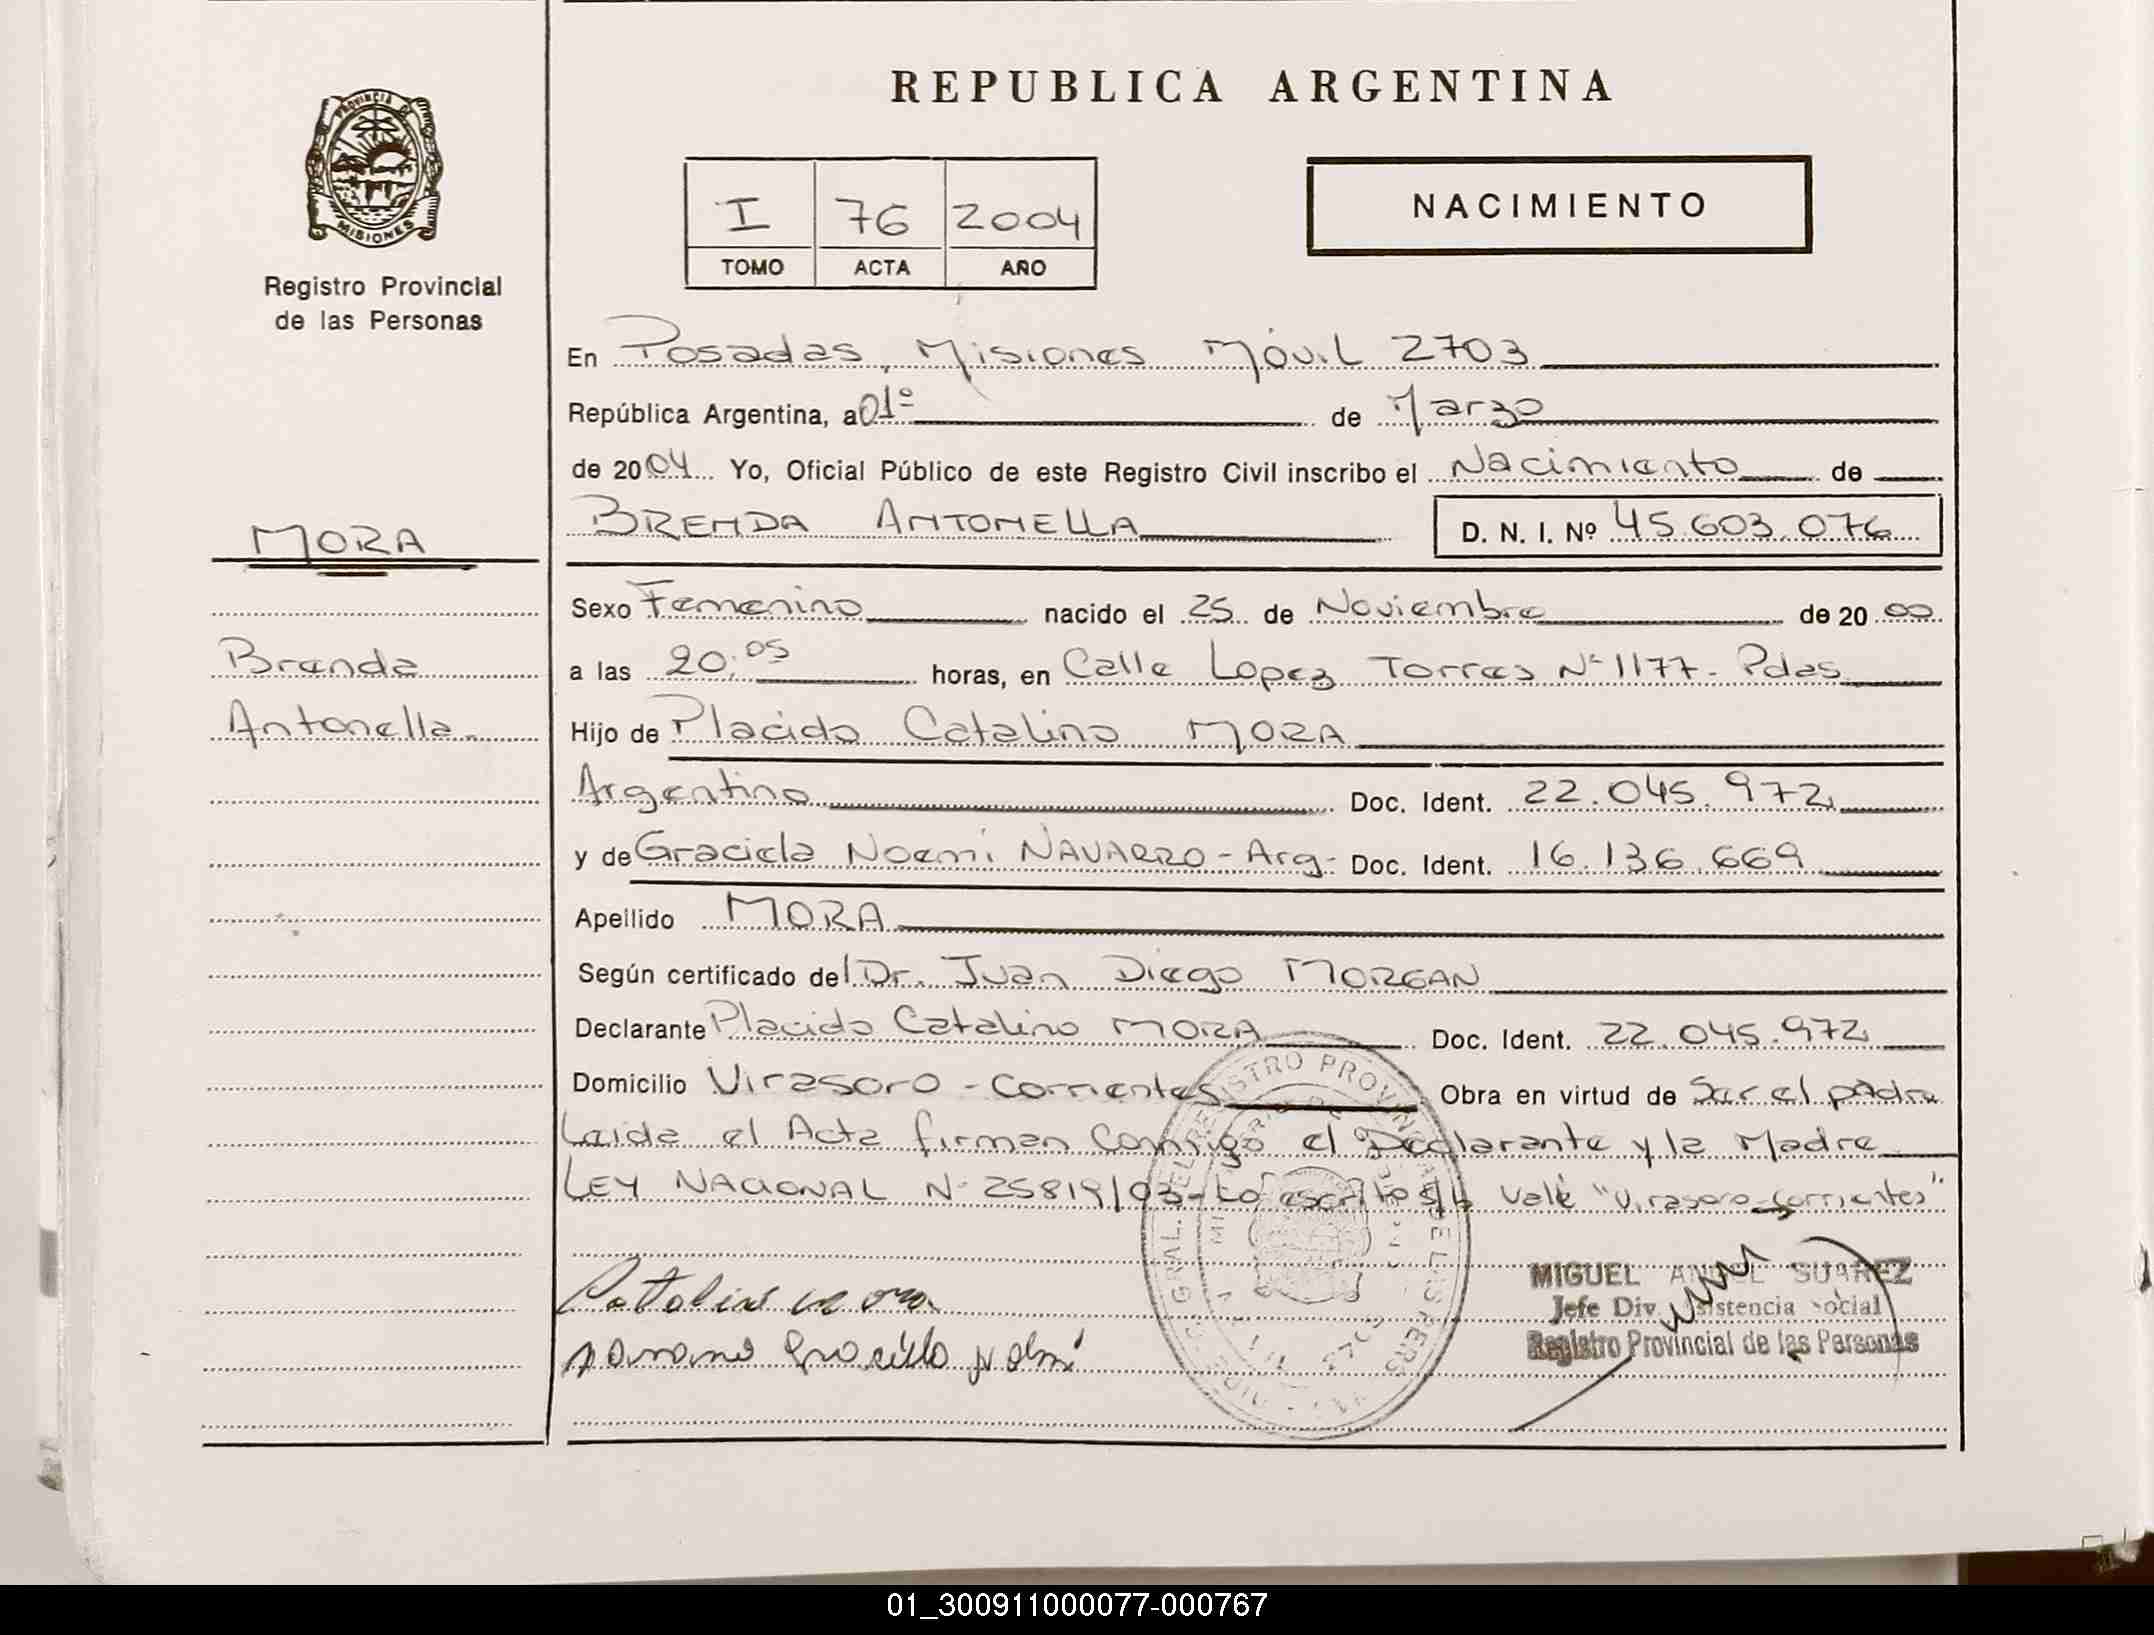 REPUBLICA ARGENTINA
PROVINCIA DE
MISIONES
Registro Provincial
de las Personas
I 76 2004
TOMO ACTA AÑO
NACIMIENTO
En Posadas, Misiones Móvil 2703
República Argentina, a 01º de Marzo
de 2004 Yo, Oficial Público de este Registro Civil inscribo el Nacimiento de
BRENDA ANTONELLA D. N. I. Nº 45.603.076
MORA
Brenda
Antonella
Sexo Femenino nacido el 25 de Noviembre de 2000
a las 20:05 horas, en Calle Lopez Torres Nº 1177 - Pdas
Hijo de Placido Catalino MORA
Argentino Doc. Ident. 22.045.972
y de Graciela Noemi NAVARRO - Arg - Doc. Ident. 16.136.669
Apellido MORA
Según certificado del Dr. Juan Diego MORGAN
Declarante Placido Catalino MORA Doc. Ident. 22.045.972
Domicilio Virasoro - Corrientes Obra en virtud de Ser el padre
Leida el Acta firman Conmigo el Declarante y la Madre
LEY NACIONAL Nº 25819/03 - Lo escrito s/b Vale "Virasoro - Corrientes"
MIGUEL ANGEL SUAREZ
Jefe Div. Asistencia Social
Registro Provincial de las Personas
01_300911000077-000767